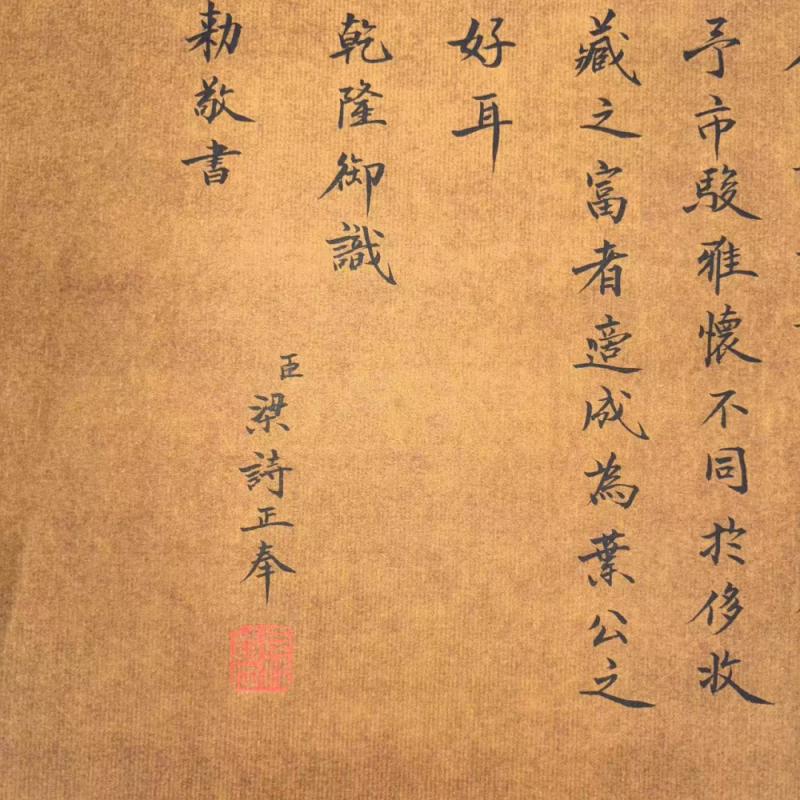 予市駿雅懷不同於侈收
藏之富者適成為葉公之
好耳
乾隆御識
臣梁詩正奉
勅敬書